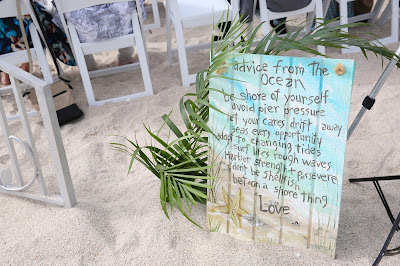 advice from the
Ocean
be shore of yourself
avoid pier pressure
let your cares drift away
seas every opportunity
adapt to changing tides
surf lifes rough waves
Harbor strength + persevere
don't be shellfish
bet on a shore thing
Love